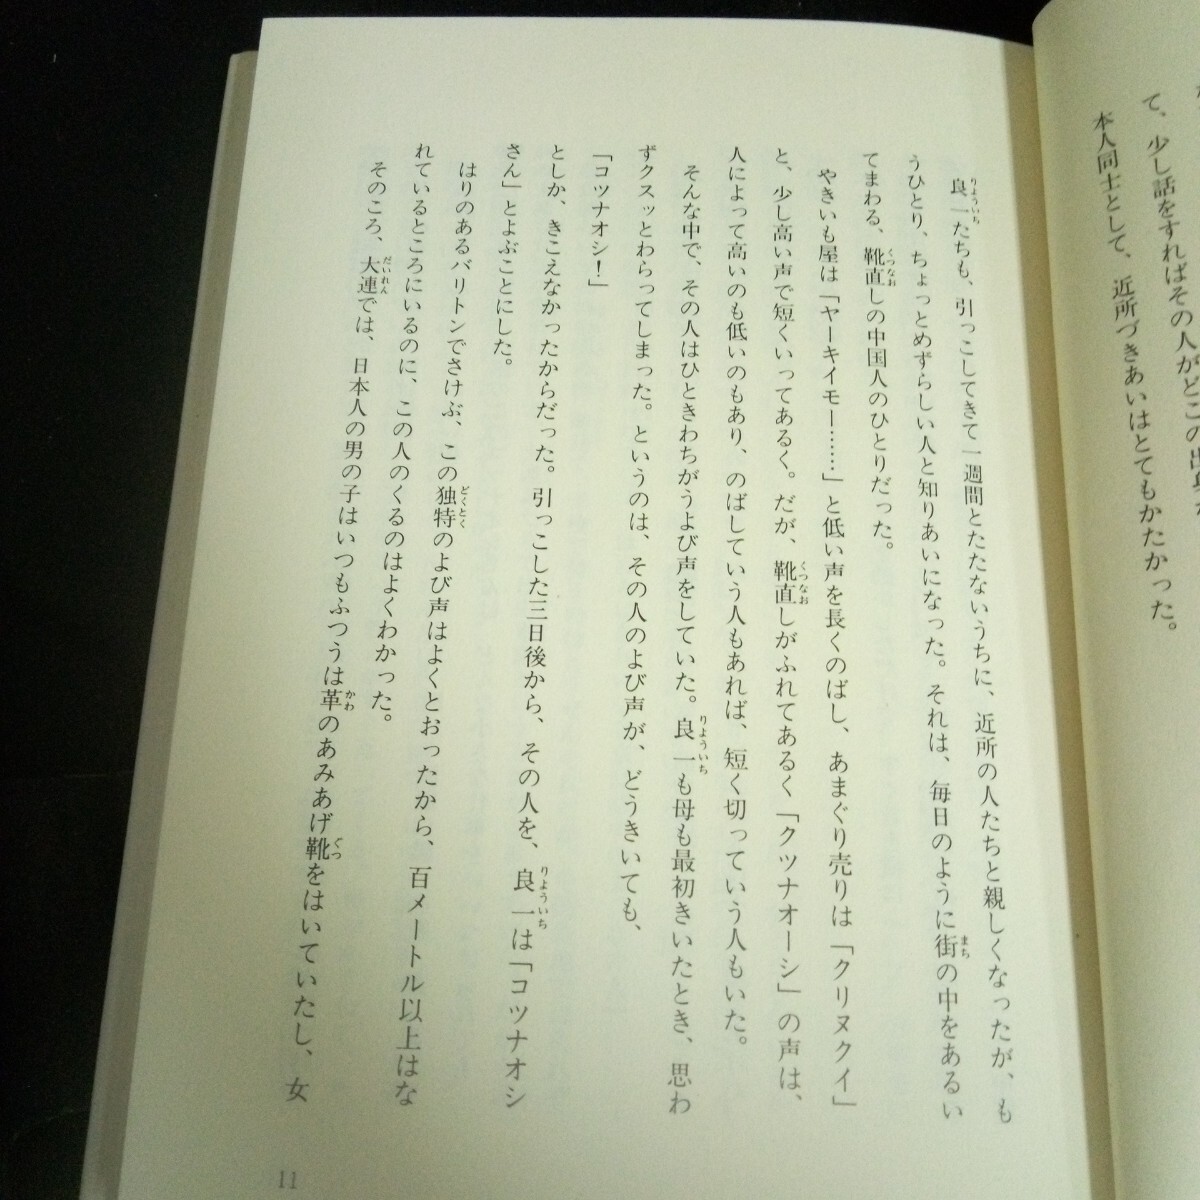 て、少し話をすればその人がどこの出身
本人同士として、近所づきあいはとてもかたかった。
良一たちも、引っこしてきて一週間とたたないうちに、近所の人たちと親しくなったが、も
うひとり、ちょっとめずらしい人と知りあいになった。それは、毎日のように街の中をあるい
てまわる、靴直しの中国人のひとりだった。
やきいも屋は「ヤーキイモー……」と低い声を長くのばし、あまぐり売りは「クリヌクイ」
と、少し高い声で短くいってあるく。だが、靴直しがふれてあるく「クツナオーシ」の声は、
人によって高いのも低いのもあり、のばしていう人もあれば、短く切っていう人もいた。
そんな中で、その人はひときわちがうよび声をしていた。良一も母も最初きいたとき、思わ
ずクスッとわらってしまった。というのは、その人のよび声が、どうきいても、
「コツナオシ！」
としか、きこえなかったからだった。引っこした三日後から、その人を、良一は「コツナオシ
さん」とよぶことにした。
はりのあるバリトンでさけぶ、この独特のよび声はよくとおったから、百メートル以上はな
れているところにいるのに、この人のくるのはよくわかった。
そのころ、大連では、日本人の男の子はいつもふつうは革のあみあげ靴をはいていたし、女
11